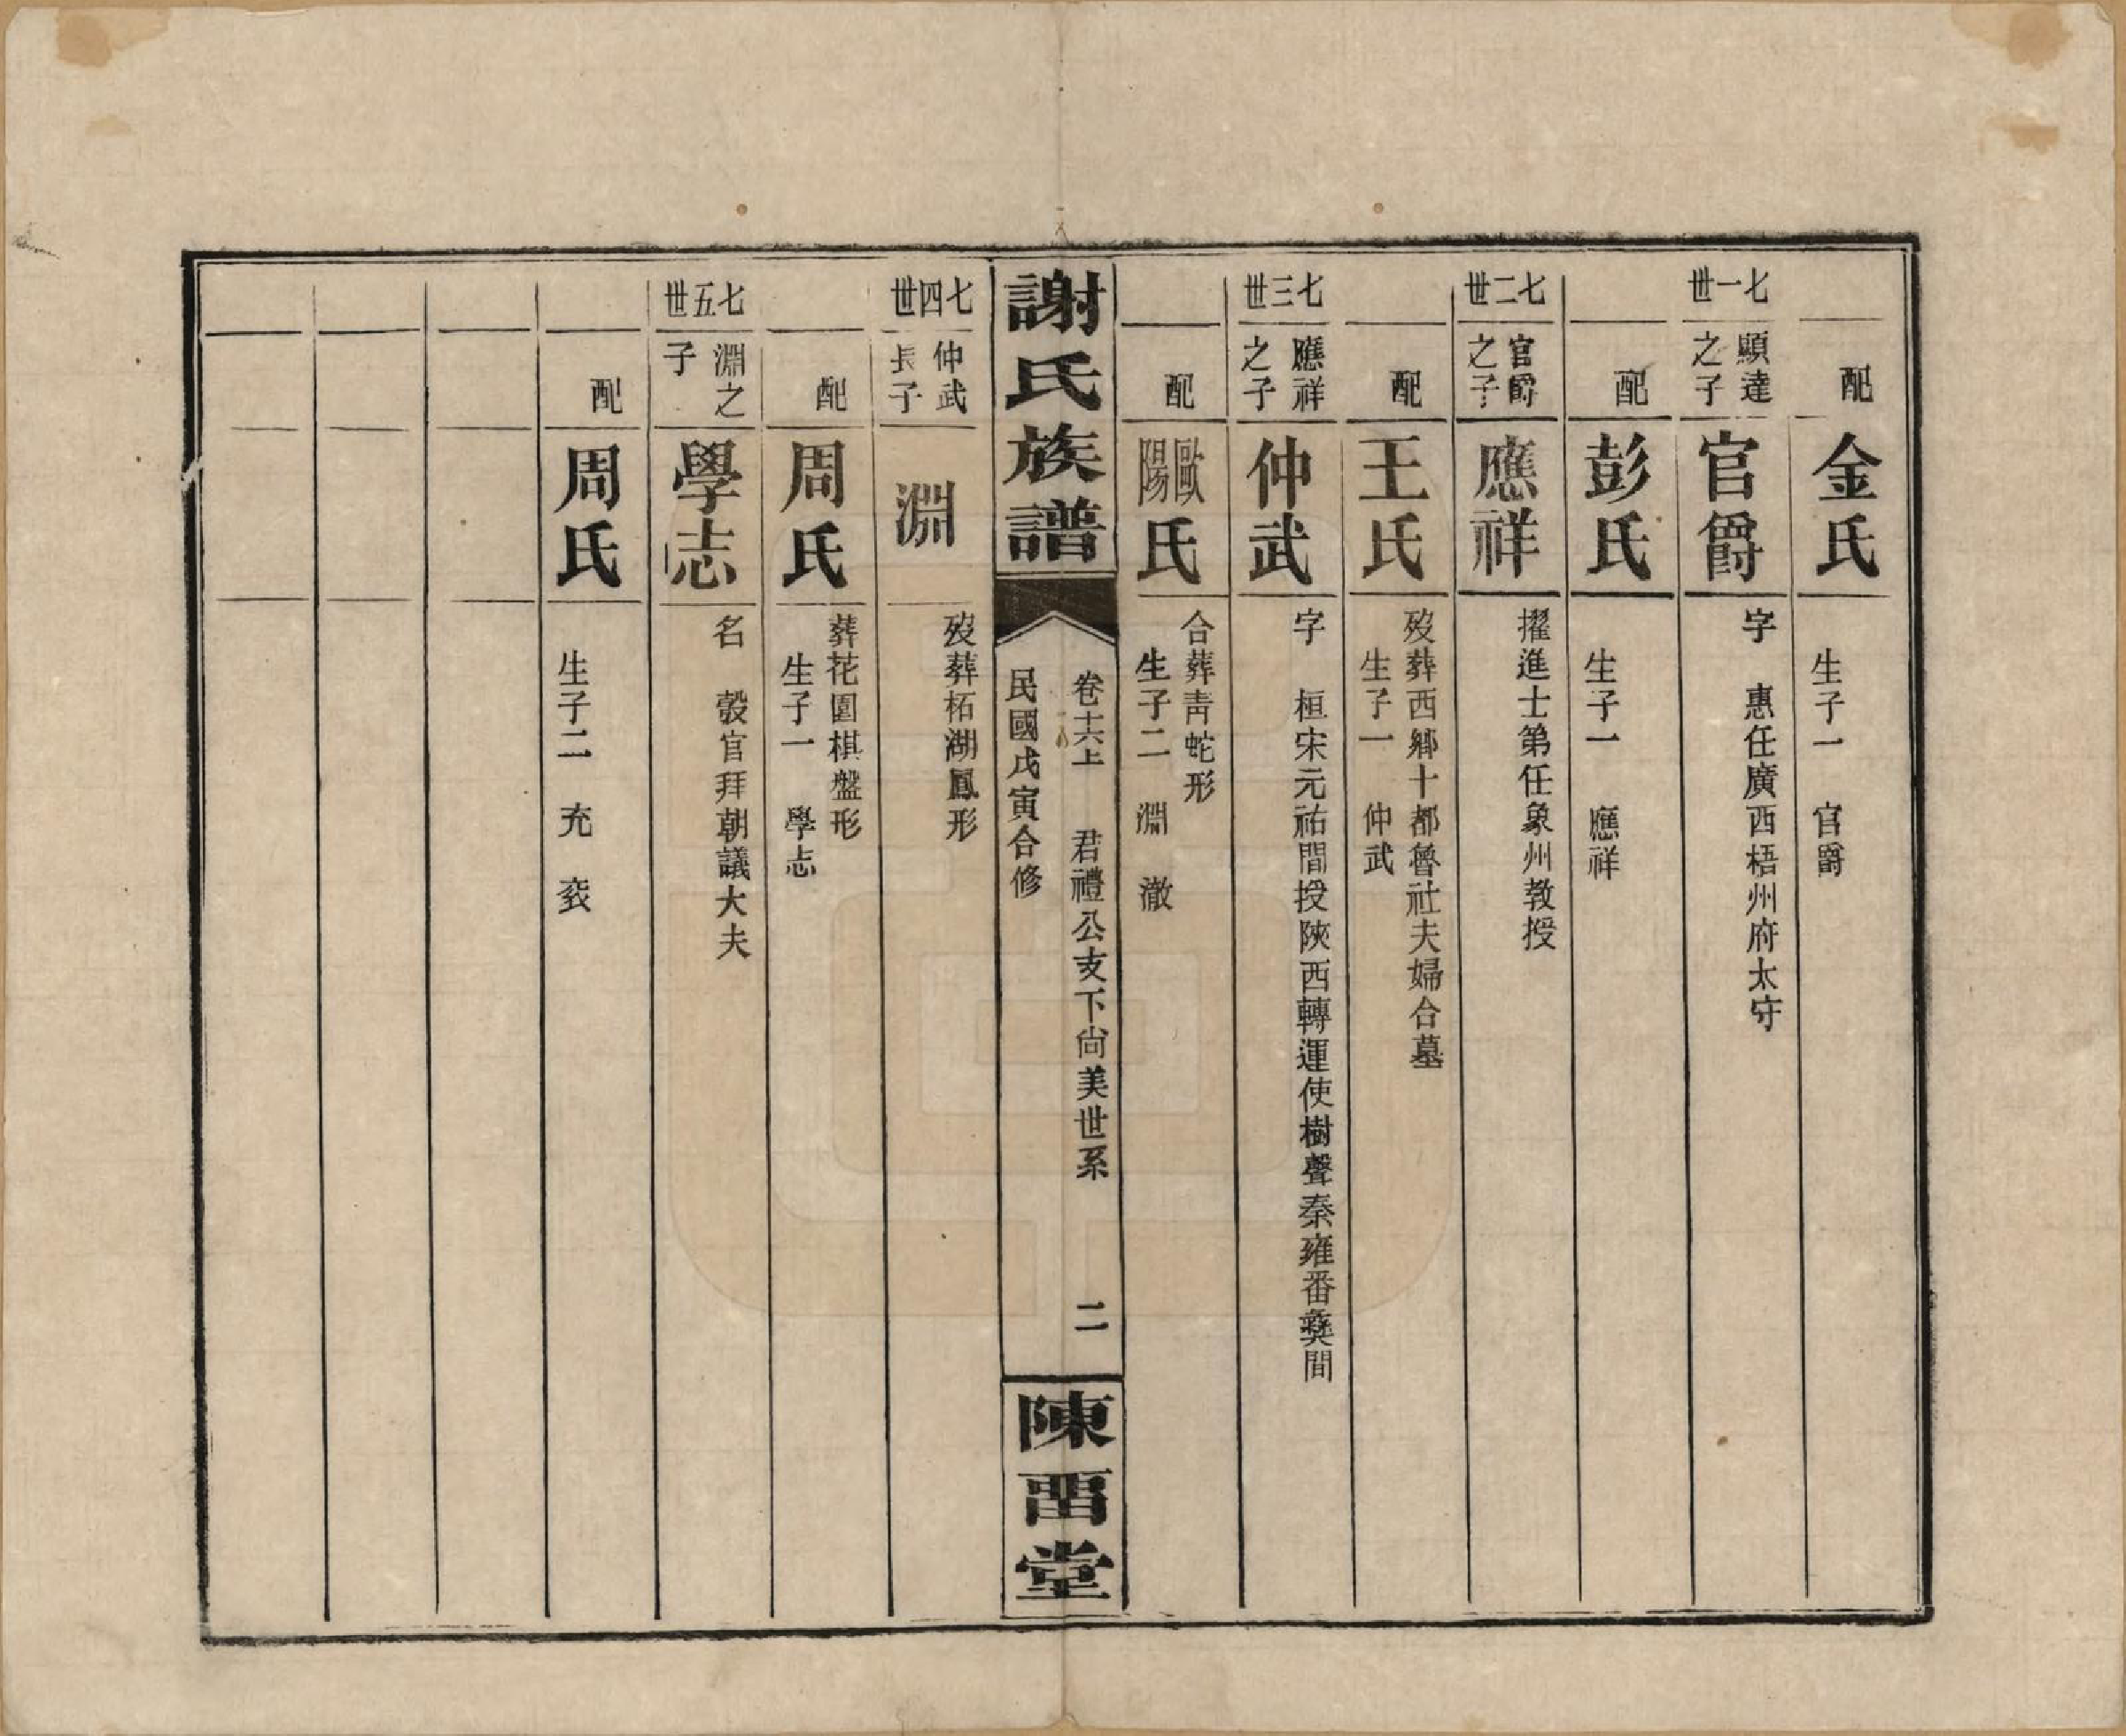 配
金氏
生子一 官爵
七一世
顯達之子
官爵
字 惠任廣西梧州府太守
配
彭氏
生子一 應祥
七二世
官爵之子
應祥
擢進士第任象州教授
配
王氏
歿葬西鄉十都魯社夫婦合墓
生子一 仲武
七三世
應祥之子
仲武
字 桓宋元祐間授陝西轉運使樹聲秦雍番彝間
配
歐陽氏
合葬青蛇形
生子二 淵 澈
謝氏族譜
卷十六上 君禮公支下尙美世系 二
民國戊寅合修
陳畱堂
七四世
仲武長子
淵
歿葬柘湖鳳形
配
周氏
葬花園棋盤形
生子一 學志
七五世
淵之子
學志
名 彀官拜朝議大夫
配
周氏
生子二 充 兖